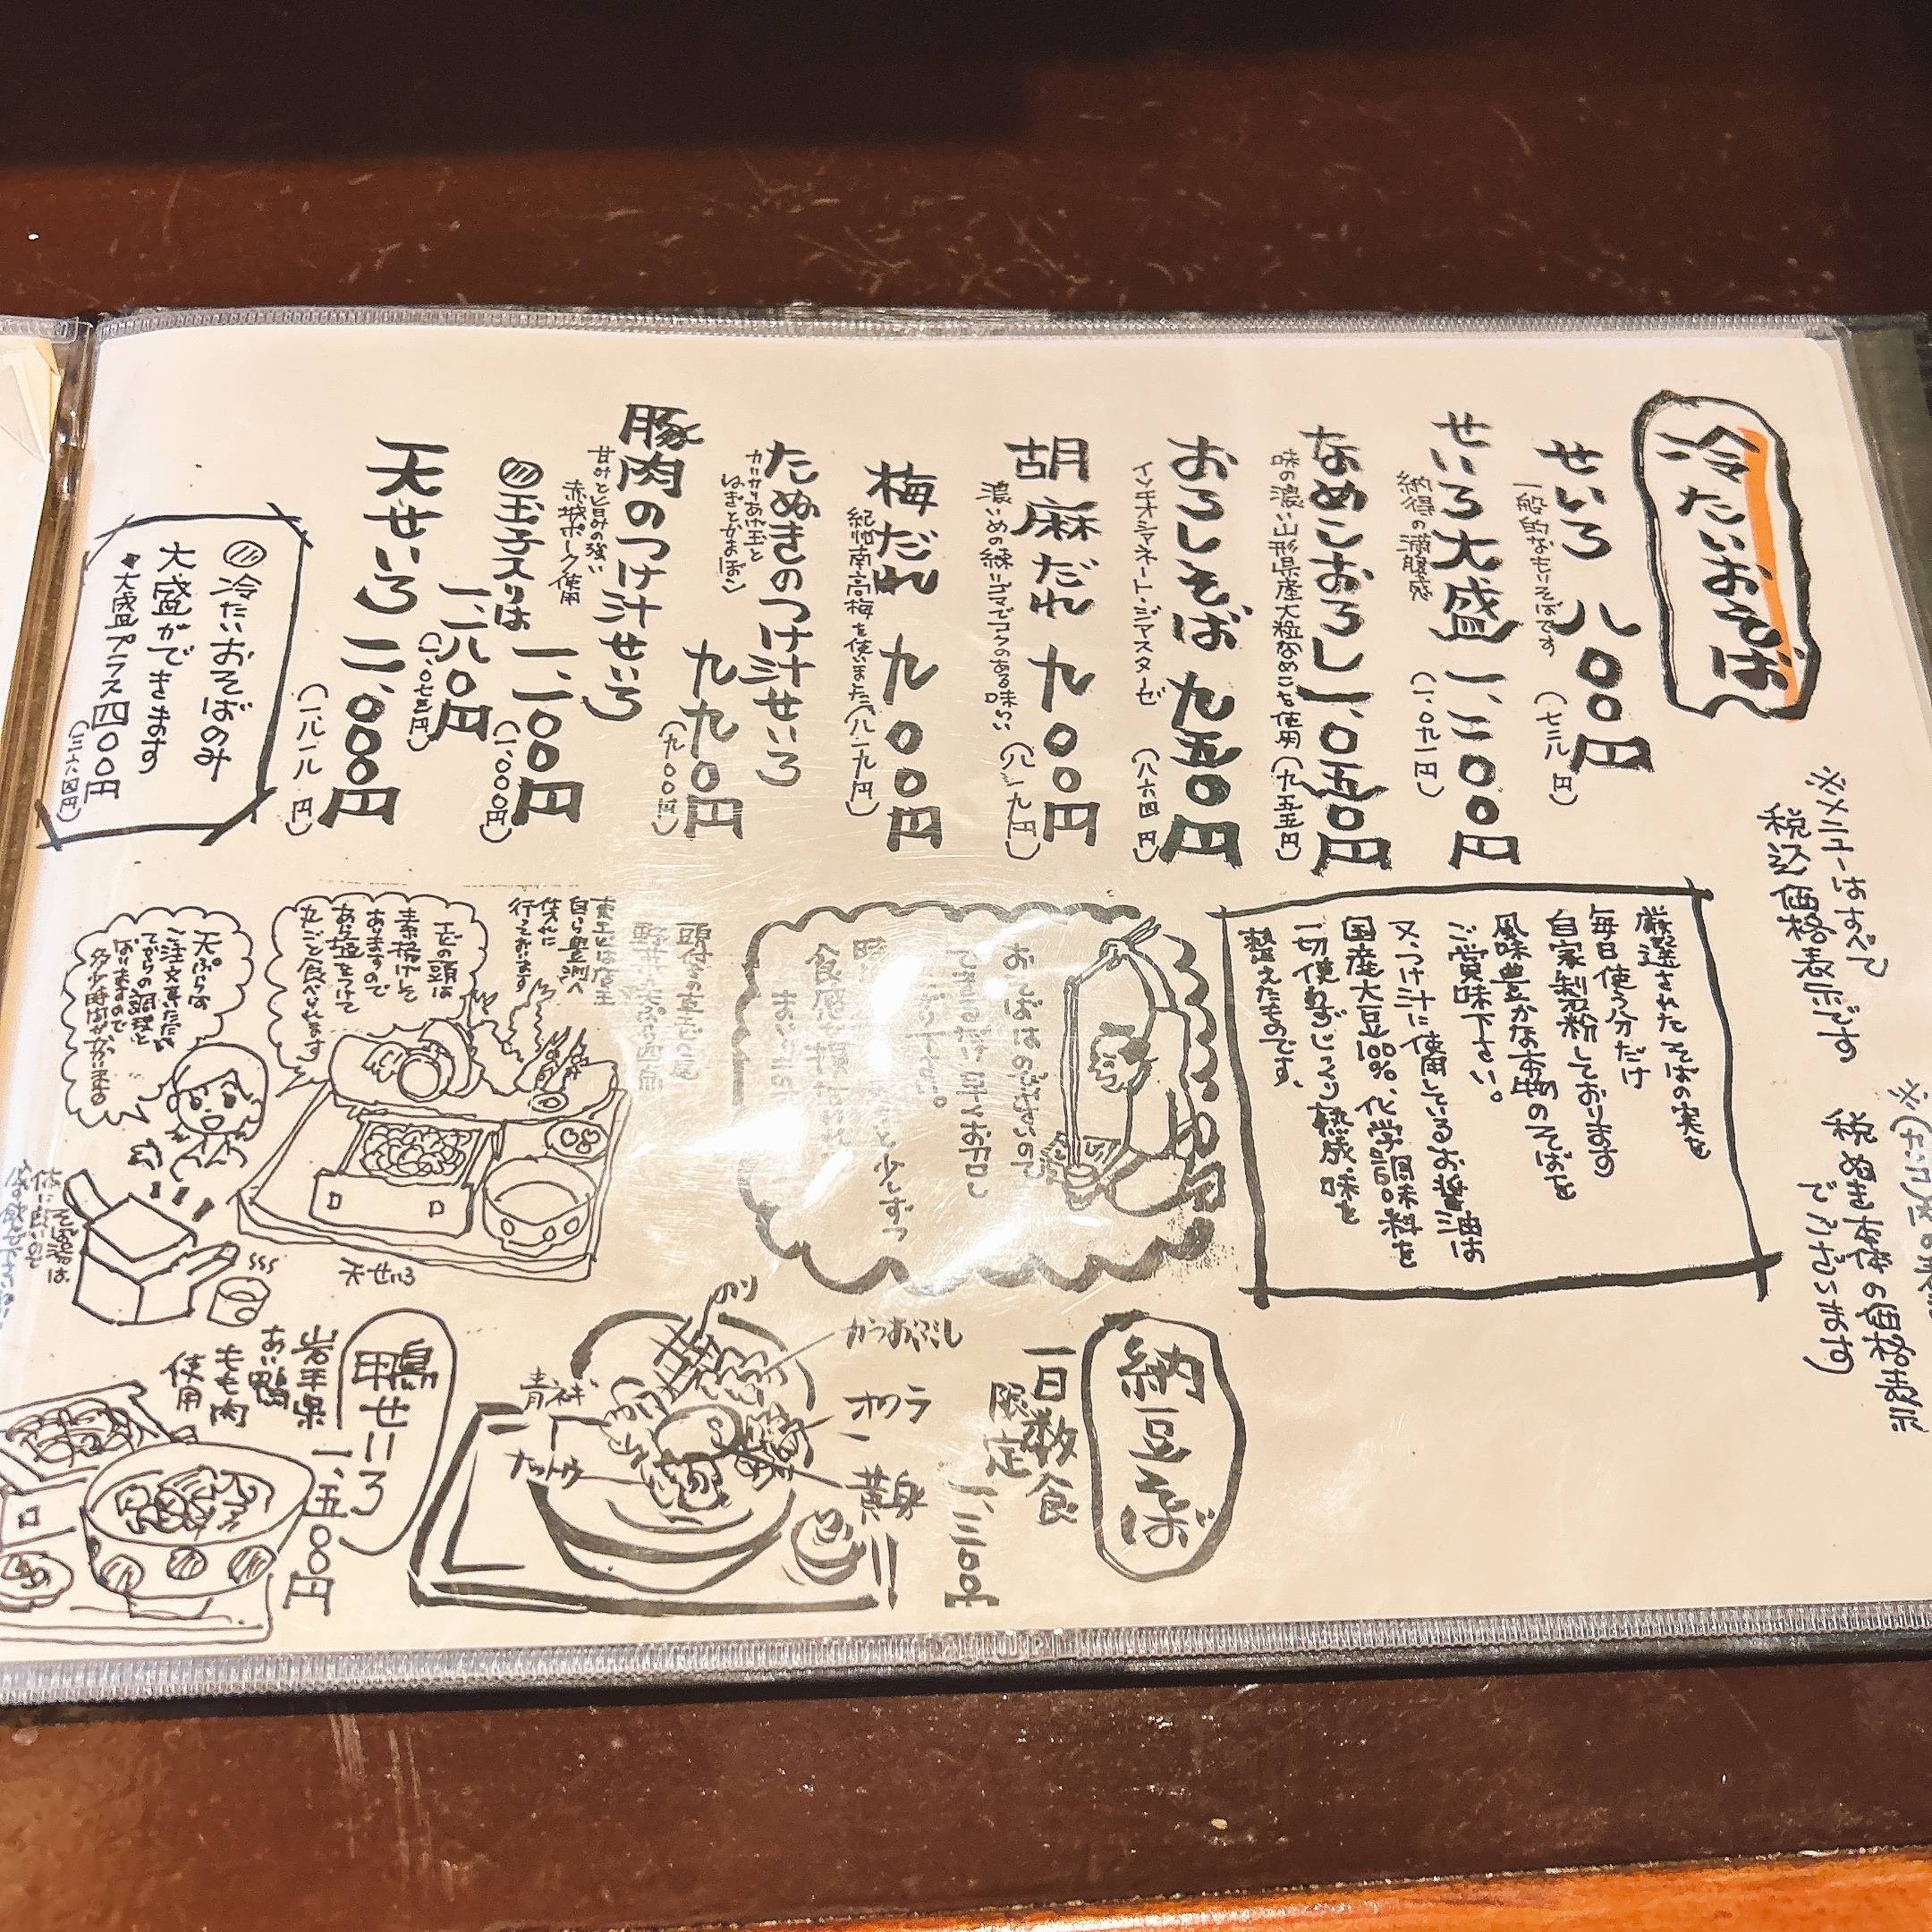 ※メニューはすべて
税込価格表示です
税ぬき本体の価格表示
でございます)
冷たいおそば
せいろ 八〇〇円
一般的なもりそばです
せいろ大盛 一、二〇〇円
納得の満腹感 (一、〇九一円)
なめこおろし 一、〇五〇円
味の濃い山形県産大粒なめこを使用 (九五五円)
おろしそば 九五〇円
イソチオシアネート・ジアスターゼ (八六四円)
胡麻だれ 九〇〇円
濃いめの練りゴマでコクのある味わい (八一九円)
梅だれ 九〇〇円
紀州南高梅を使いました (八一九円)
たぬきのつけ汁せいろ
カリカリあげ玉と
ねぎとかまぼこ
九九〇円
(九〇〇円)
豚肉のつけ汁せいろ
甘みと旨みの強い
赤城ポーク使用
一、一〇〇円
(一、〇〇〇円)
玉子入りは
一、一八〇円
(一、〇七三円)
天せいろ 二、〇〇〇円
(一八一八円)
冷たいおそばのみ
大盛ができます
大盛プラス四〇〇円
(三六四円)
厳選されたそばの実を
毎日使う分だけ
自家製粉しております
風味豊かな本物のそばを
ご賞味下さい。
又つけ汁に使用しているお醤油は
国産大豆100%、化学調味料を
一切使わずじっくり熟成味を
整えたものです。
おそばはのびやすいので
食感
車エビは店主
自ら豊洲へ
仕入れに
行っております
エビの頭は
素揚げして
ありますので
お塩をつけて
丸ごと食べれます
天ぷらは
ご注文をいただいて
からの調理と
なりますので
多少時間がかかります
天せいろ
納豆そば
一日数食
限定
かつおぶし
オクラ
黄身
青ネギ
ナットウ
鴨せいろ
岩手県
あい鴨
もも肉
使用
一、五〇〇円